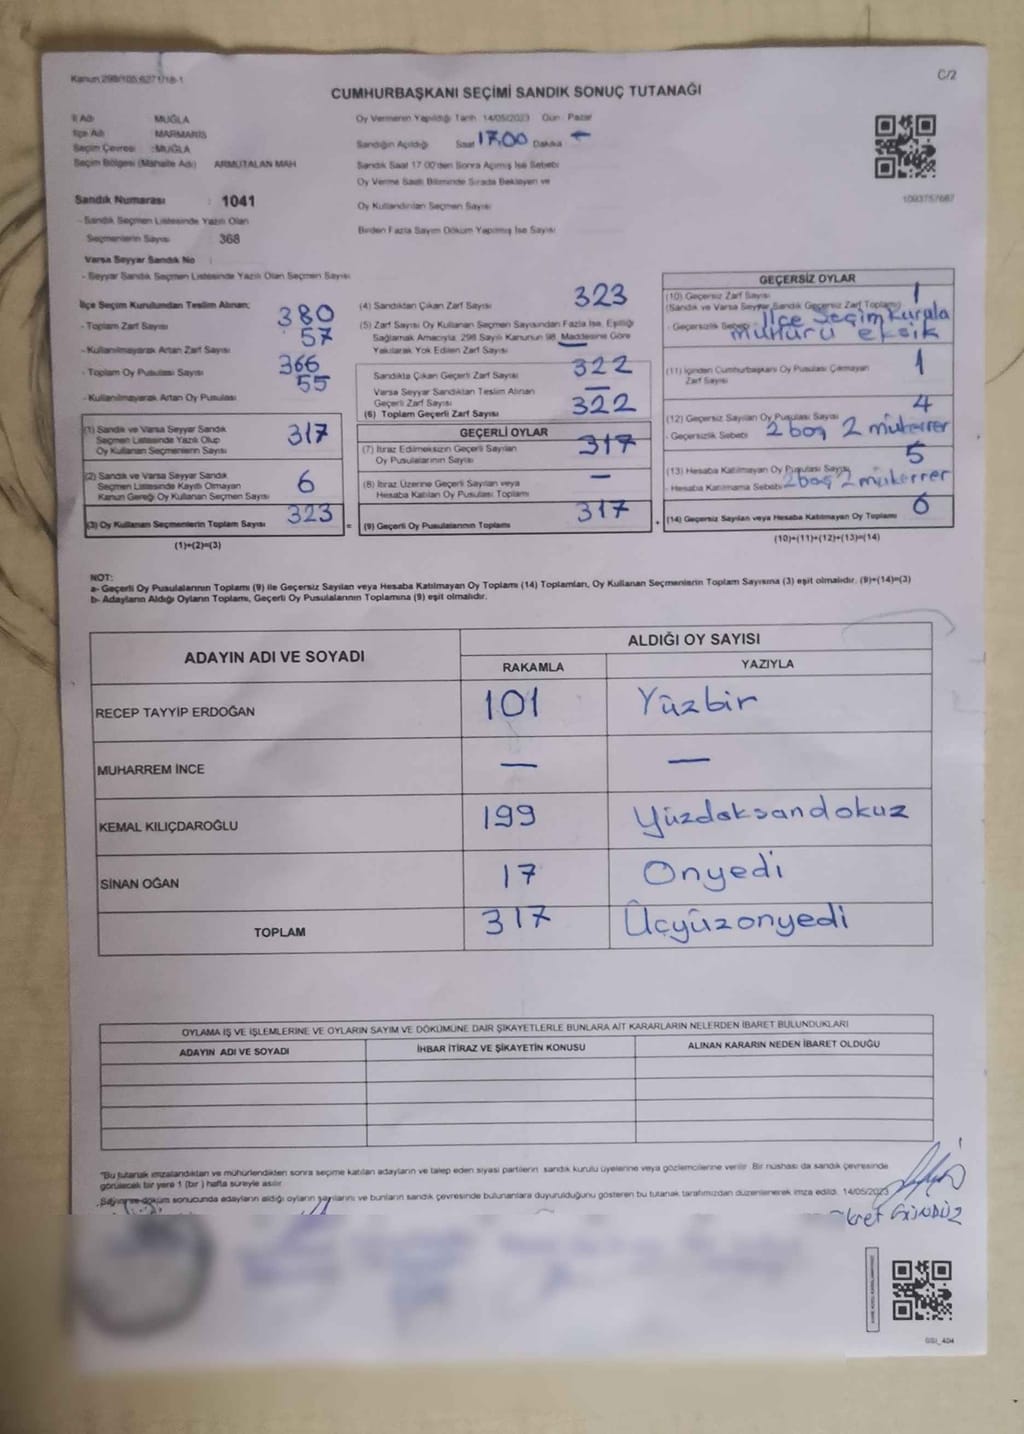 Kanun 298/105;6271/18-1
C/2
CUMHURBAŞKANI SEÇİMİ SANDIK SONUÇ TUTANAĞI
İl Adı MUĞLA
İlçe Adı MARMARİS
Seçim Çevresi :MUĞLA
Seçim Bölgesi (Mahalle Adı) ARMUTALAN MAH
Sandık Numarası : 1041
- Sandık Seçmen Listesinde Yazılı Olan
Seçmenlerin Sayısı : 368
Varsa Seyyar Sandık No :
- Seyyar Sandık Seçmen Listesinde Yazılı Olan Seçmen Sayısı
Oy Vermenin Yapıldığı Tarih 14/05/2023 Gün Pazar
Sandığın Açıldığı Saat 17,00 Dakika -
Sandık Saat 17 00'den Sonra Açımış İse Sebebi
Oy Verme Saati Bitiminde Sırada Bekleyen ve
Oy Kullandırılan Seçmen Sayısı
Birden Fazla Sayım Döküm Yapılmış İse Sayısı
1093757687
İlçe Seçim Kurulundan Teslim Alınan;
- Toplam Zarf Sayısı 380
- Kullanılmayarak Artan Zarf Sayısı 57
- Toplam Oy Pusulası Sayısı 366
- Kullanılmayarak Artan Oy Pusulası 55
(1) Sandık ve Varsa Seyyar Sandık
Seçmen Listesinde Yazılı Olup
Oy Kullanan Seçmenlerin Sayısı 317
(2) Sandık ve Varsa Seyyar Sandık
Seçmen Listesinde Kayıtlı Olmayan
Kanun Gereği Oy Kullanan Seçmen Sayısı 6
(3) Oy Kullanan Seçmenlerin Toplam Sayısı 323
(1)+(2)=(3)
(4) Sandıktan Çıkan Zarf Sayısı 323
(5) Zarf Sayısı Oy Kullanan Seçmen Sayısından Fazla İse, Eşitliği
Sağlamak Amacıyla; 298 Sayılı Kanunun 98. Maddesine Göre
Yakılarak Yok Edilen Zarf Sayısı —
Sandıkta Çıkan Geçerli Zarf Sayısı 322
Varsa Seyyar Sandıktan Teslim Alınan
Geçerli Zarf Sayısı —
(6) Toplam Geçerli Zarf Sayısı 322
GEÇERLİ OYLAR
(7) İtiraz Edilmeksizin Geçerli Sayılan
Oy Pusulalarının Sayısı 317
(8) İtiraz Üzerine Geçerli Sayılan veya
Hesaba Katılan Oy Pusulası Toplamı —
= (9) Geçerli Oy Pusulalarının Toplamı 317 +
GEÇERSİZ OYLAR
(10) Geçersiz Zarf Sayısı 1
(Sandık ve Varsa Seyyar Sandık Geçersiz Zarf Toplamı)
- Geçersizlik Sebebi İlçe Seçim Kurulu
mühürü eksik
(11) İçinden Cumhurbaşkanı Oy Pusulası Çıkmayan
Zarf Sayısı 1
(12) Geçersiz Sayılan Oy Pusulası Sayısı 4
- Geçersizlik Sebebi 2 boş 2 mükerrer
(13) Hesaba Katılmayan Oy Pusulası Sayısı 5
- Hesaba Katılmama Sebebi 2 boş 2 mükerrer
(14) Geçersiz Sayılan veya Hesaba Katılmayan Oy Toplamı 6
(10)+(11)+(12)+(13)=(14)
NOT:
a- Geçerli Oy Pusulalarının Toplamı (9) ile Geçersiz Sayılan veya Hesaba Katılmayan Oy Toplamı (14) Toplamları, Oy Kullanan Seçmenlerin Toplam Sayısına (3) eşit olmalıdır. (9)+(14)=(3)
b- Adayların Aldığı Oyların Toplamı, Geçerli Oy Pusulalarının Toplamına (9) eşit olmalıdır.
ADAYIN ADI VE SOYADI ALDIĞI OY SAYISI
RAKAMLA YAZIYLA
RECEP TAYYİP ERDOĞAN 101 Yüzbir
MUHARREM İNCE — —
KEMAL KILIÇDAROĞLU 199 Yüzdoksandokuz
SİNAN OĞAN 17 Onyedi
TOPLAM 317 Üçyüzonyedi
OYLAMA İŞ VE İŞLEMLERİNE VE OYLARIN SAYIM VE DÖKÜMÜNE DAİR ŞİKAYETLERLE BUNLARA AİT KARARLARIN NELERDEN İBARET BULUNDUKLARI
ADAYIN ADI VE SOYADI İHBAR İTİRAZ VE ŞİKAYETİN KONUSU ALINAN KARARIN NEDEN İBARET OLDUĞU
"Bu tutanak imzalandıktan ve mühürlendikten sonra seçime katılan adayların ve talep eden siyasi partilerin sandık kurulu üyelerine veya gözlemcilerine verilir. Bir nüshası da sandık çevresinde
görülecek bir yere 1 (bir ) hafta süreyle asılır.
Sayım ve döküm sonucunda adayların aldığı oyların sayılarını ve bunların sandık çevresinde bulunanlara duyurulduğunu gösteren bu tutanak tarafımızdan düzenlenerek imza edildi. 14/05/2023
GÜNDÜZ